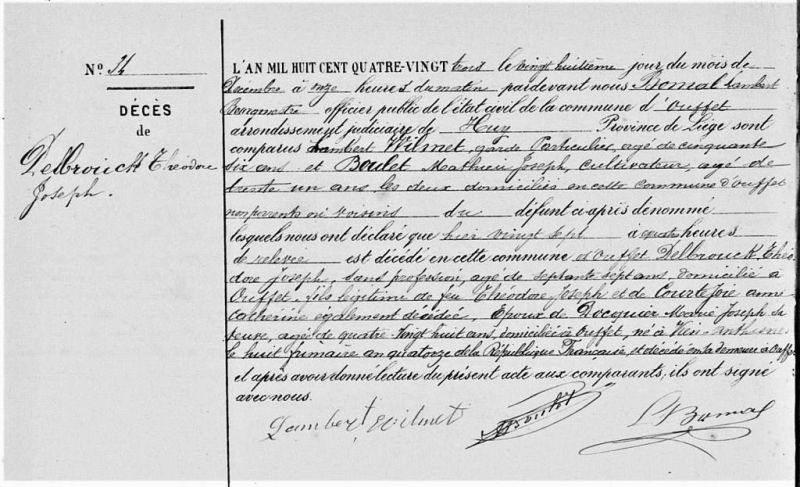 N.o 24
DÉCÈS
de
Delbrouck Théodore
Joseph.
L'AN MIL HUIT CENT QUATRE-VINGT trois le vingt huitième jour du mois de
Décembre à onze heures du matin pardevant nous Bomal Lambert
Bourgmestre officier public de l'état civil de la commune d'Ouffet
arrondissement judiciaire de Huy Province de Liège sont
comparus Lambert Wilmet, garde Particulier, agé de cinquante
six ans et Boulet Mathieu Joseph, cultivateur, agé de
trente un ans, les deux domiciliés en cette commune d'Ouffet
non parents ni voisins du défunt ci-après dénommé
lesquels nous ont déclaré que hier vingt sept à quatre heures
de relevée est décédé en cette commune d'Ouffet Delbrouck Théo
dore Joseph, sans profession, agé de septante sept ans, domicilié à
Ouffet, fils légitime de feu Théodore Joseph et de Courtejoie anne
catherine également décédée, Epoux de Docquier Marie Joseph sa
veuve, agée de quatre-vingt huit ans, domiciliée à Ouffet, né à Vien-Anthisnes
le huit frimaire an quatorze de la République Française, et décédé en sa demeure à Ouffet
et après avoir donné lecture du présent acte aux comparants, ils ont signé
avec nous.
Lambert Wilmet Boulet L Bomal